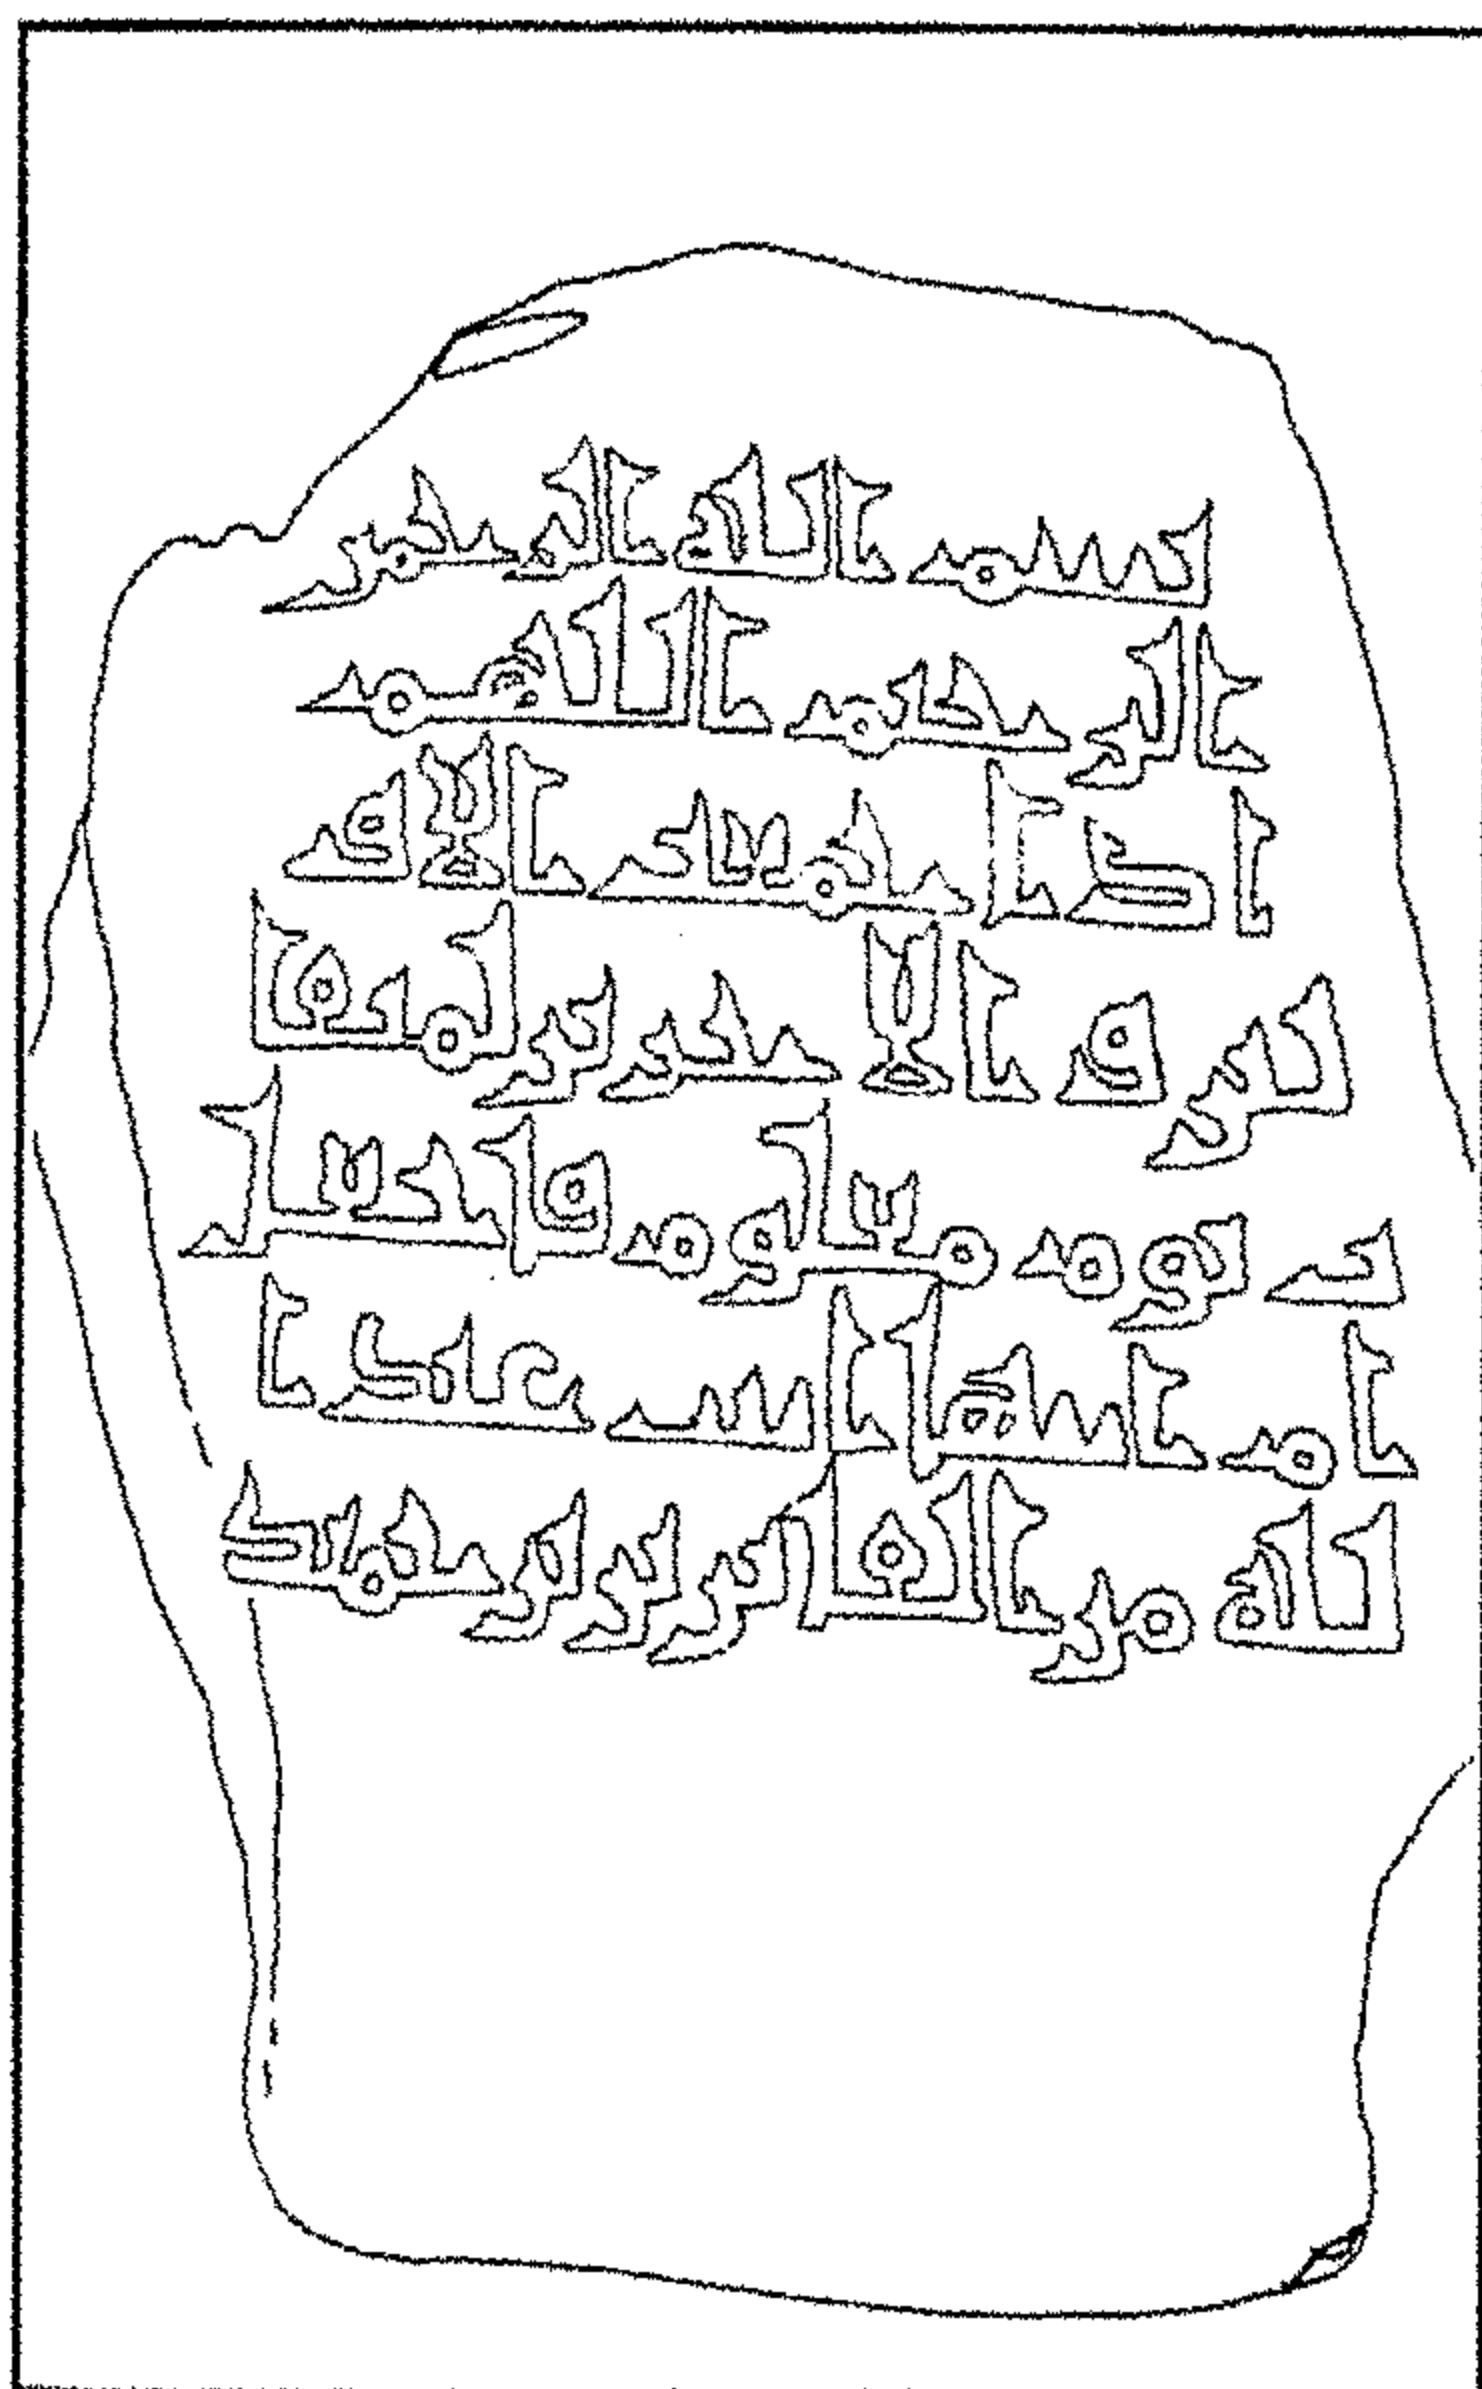 بسم الله الرحمن
الرحيم اللهم
اذا جمعت الاو
لين والاخرين لميقا
ت يوم معلوم فاجعل
ام ابيها ابنت عبد ا
لله من الفائزين برحمتك